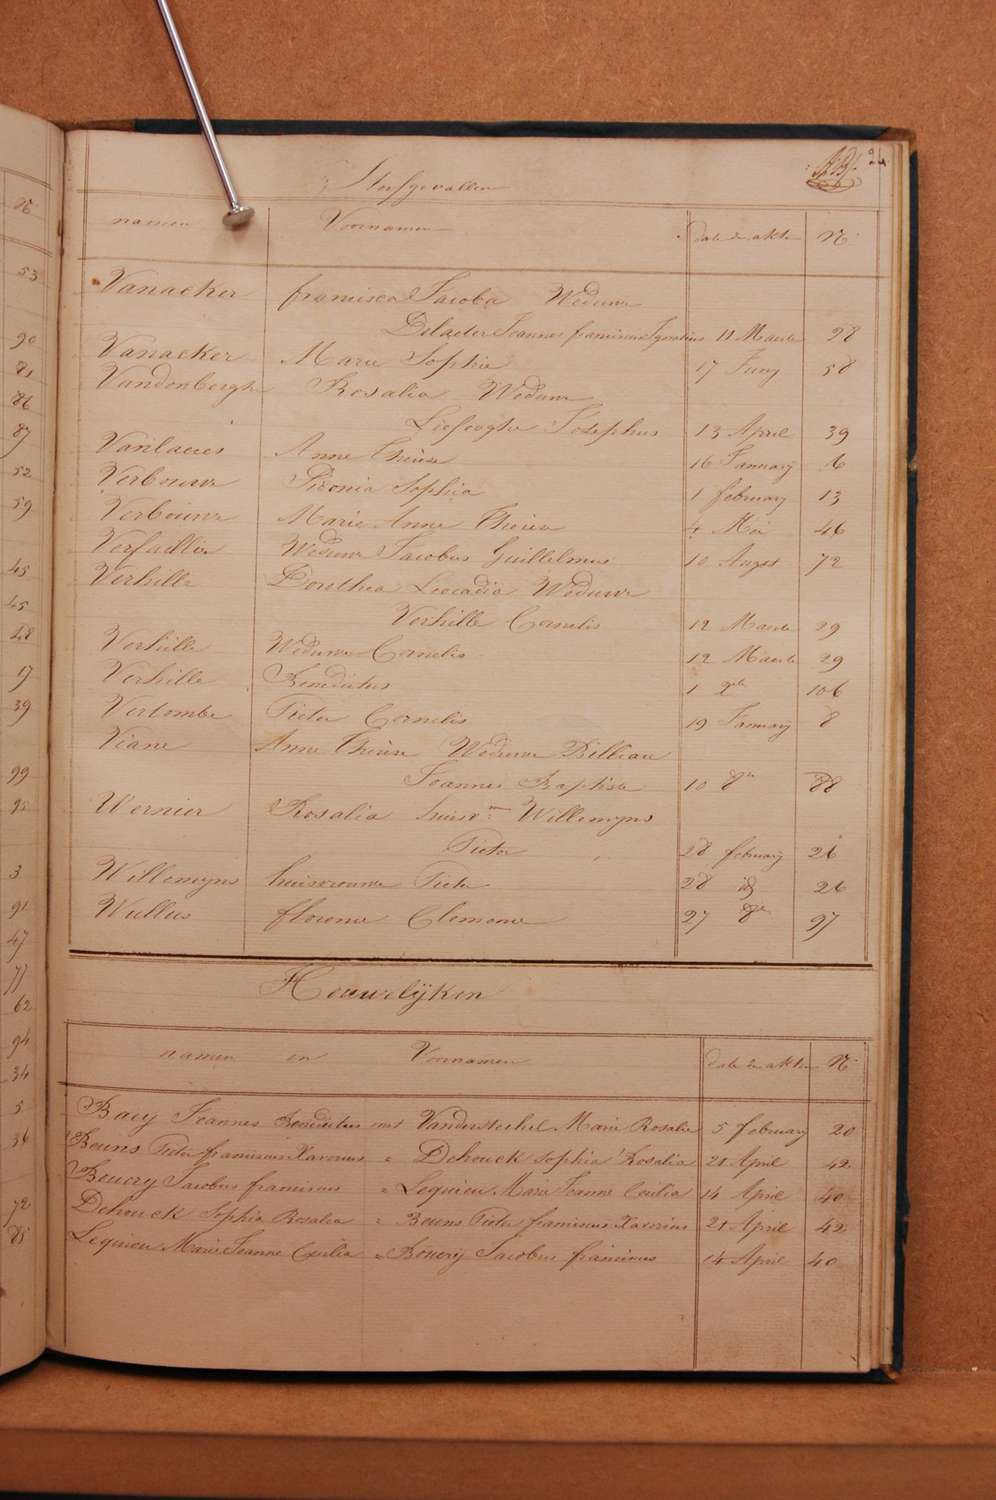 Sterfgevallen
24
namen Voornamen date der akten N°
Vanacker francisca Jacoba Weduwe
Delaeter Joannes franciscus Ignatius 11 Maerte 98
Vanacker Marie Sophie 17 Juny 58
Vandenberghe Rosalia Weduwe
Liefooghe Josephus 13 April 39
Vanlaeres Anne Therese 16 January 6
Verbouwe Sophia 1 february 13
Verbouwe Marie Anne Therese 4 Mei 46
Verfaillie Weduwe Jacobus Guillelmus 10 Augst 72
Verhille Dorothea Leocadia Weduwe
Verhille Cornelis 12 Maerte 29
Verhille Weduwe Cornelis 12 Maerte 29
Verhille Benedictus 1 106
Verlombe Pieter Cornelis 19 January 8
Viane Anne Therese Weduwe Billiau
Joannes Baptiste 10 8re 88
Wernier Rosalia huisv: Willemyns
Pieter 28 february 26
Willemyns huisvrouwe Pieter 28 id 26
Wullus florence Clemence 27 8re 97
Houwelijken
namen en Voornamen date der akten N°
Baey Joannes Benedictus met Vandersteehel Marie Rosalie 5 february 20
Beuns Pieter franciscus Xaverius " Dehouck Sophia Rosalia 21 April 42
Boucry Jacobus franciscus " Lequieu Marie Jeanne Cecilia 14 April 40
Dehouck Sophia Rosalia " Beuns Pieter franciscus Xaverius 21 April 42
Lequieu Marie Jeanne Cecilia " Boucry Jacobus franciscus 14 April 40
N°
53
90
81
86
87
52
59
45
45
28
17
39
99
3
91
47
77
62
94
34
5
36
72
85